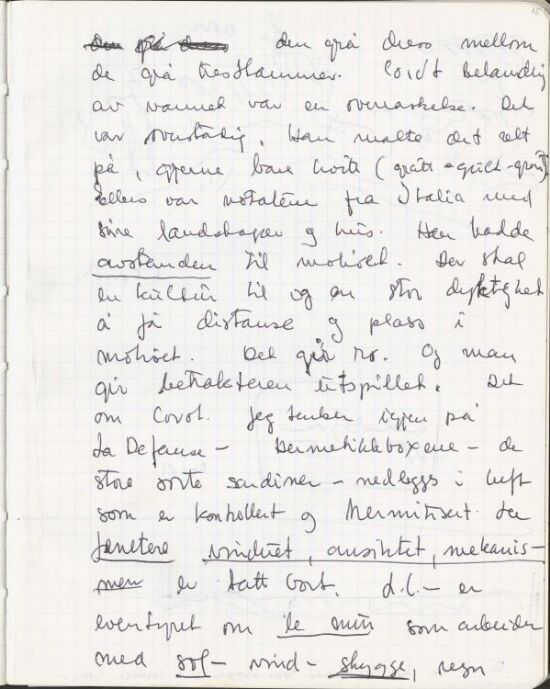 den grå dress mellom
de grå trestammer. Corots behandling
av vannet var en overraskelse. Det
var ovnstødig. Han malte det tett
på, gjerne bare hvitt (grått - gult - grønt)
ellers var notatene fra Italia med
sine landskaper og hus. Han hadde
avstanden til motivet. Der skal
en kultur til og en stor dyktighet
å få distanse og plass i
motivet. Det gir ro. Og man
gir betrakteren utspillet. Det
om Corot. Jeg tenker igjen på
La Defense - Hermetikkboxene - de
store sorte sardiner - nedlegges i luft
som er kontrollert og Hermitisert. Le
fenetere vinduet, ansiktet, mekanis-
men er tatt bort. d.v. - er
eventyret om le mur som arbeider
med sol - vind - skygge, regn